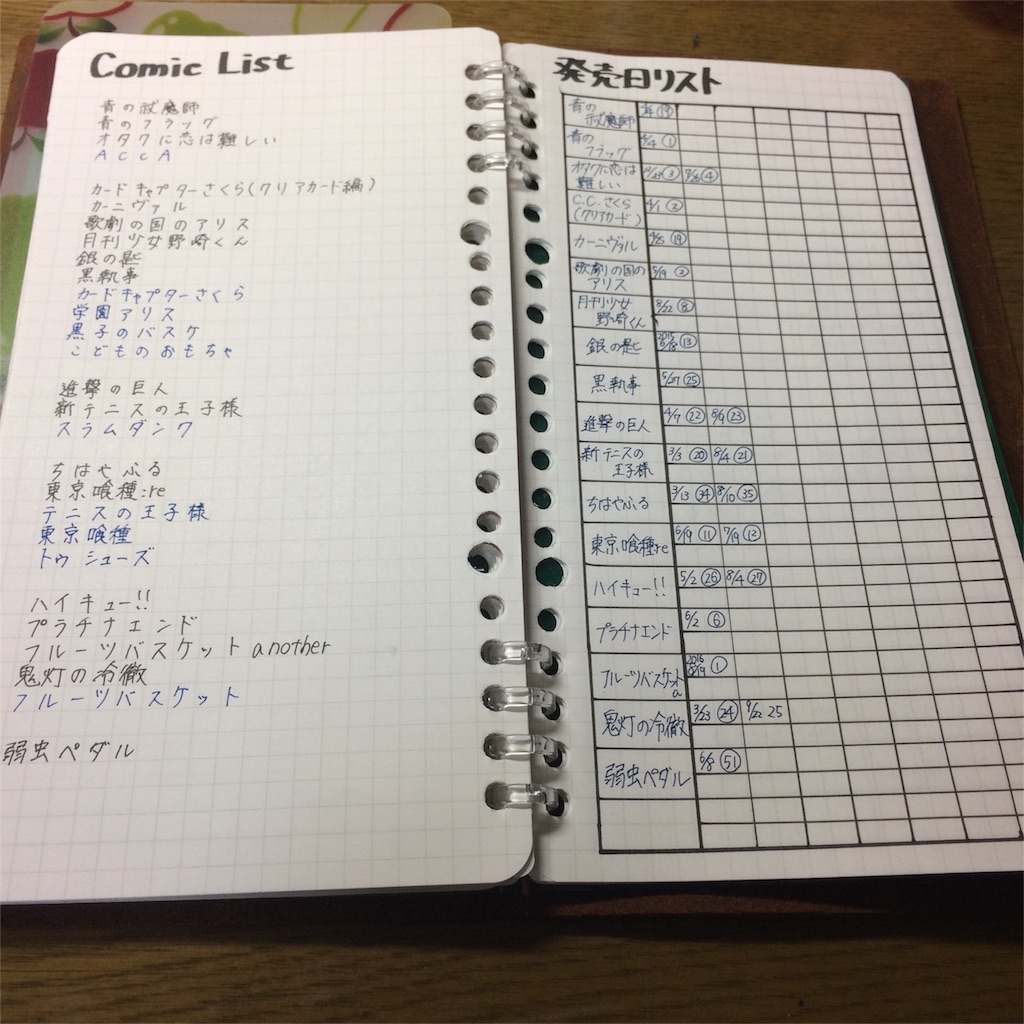 Comic List
青の祓魔師
青のフラッグ
オタクに恋は難しい
ACCA
カードキャプターさくら(クリアカード編)
カーニヴァル
歌劇の国のアリス
月刊少女野崎くん
銀の匙
黒執事
カードキャプターさくら
学園アリス
黒子のバスケ
こどものおもちゃ
進撃の巨人
新テニスの王子様
スラムダンク
ちはやふる
東京喰種:re
テニスの王子様
東京喰種
トウシューズ
ハイキュー!!
プラチナエンド
フルーツバスケット another
鬼灯の冷徹
フルーツバスケット
弱虫ペダル
発売日リスト
青の
祓魔師 ⑲
青の
フラッグ ①
オタクに恋は
難しい ③ ④
C.C.さくら
(クリアカード) 4/1 ②
カーニヴァル ⑲
歌劇の国の
アリス 5/19 ②
月刊少女
野崎くん 8/22 ⑧
銀の匙 2015 ⑬
黒執事 5/27 ㉕
進撃の巨人 4/7 ㉒ 8/9 ㉓
新テニスの
王子様 3/3 ⑳ 8/4 ㉑
ちはやふる 3/13 ㉞ 8/10 ㉟
東京喰種:re ⑪ 7/19 ⑫
ハイキュー!! 5/2 ㉖ 8/4 ㉗
プラチナエンド 6/2 ⑥
フルーツバスケット
a 2016 8/19 ①
鬼灯の冷徹 3/23 ㉔ 9/22 25
弱虫ペダル 6/8 51